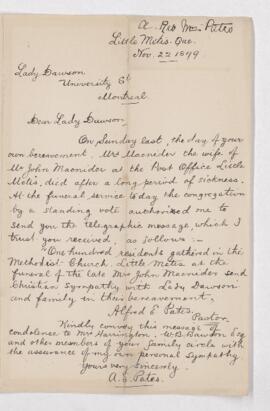 A. Rev Mr Pates
Little Metis. Que.
Nov. 22nd 1899
Lady Dawson
University St
Montreal.
Dear Lady Dawson,
On Sunday last, the day of your
own bereavement, Mrs Macnider the wife of
Mr John Macnider at the Post Office Little
Metis, died after a long period of sickness.
At the funeral service today the congregation
by a standing vote authorized me to
send you the telegraphic message, which I
trust you received as follows :—
"One hundred residents gathered in the
Methodist Church, Little Metis at the
funeral of the late Mrs John Macnider send
Christian sympathy with Lady Dawson
and family in their bereavement.
Alfred E Pates.
Pastor.
Kindly convey this message of
condolence to Mrs Harrington, W. B. Dawson Esq
and other members of your family circle with
the assurance of my own personal sympathy.
Yours very sincerely
A. E. Pates.